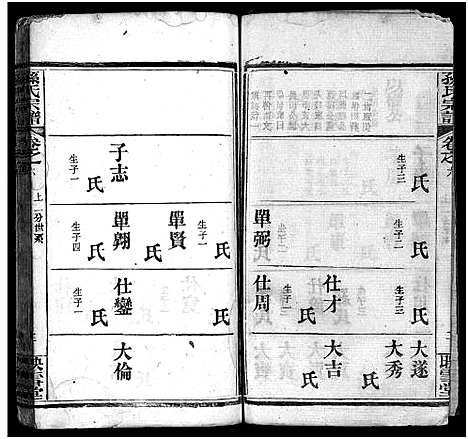 孫氏宗譜
卷之六
映雪堂
氏
生子三
單弼
氏
生子二
仕才
氏
生子三
仕周
氏
生子一
大遂
大秀
氏
大吉
氏
子志
氏
生子一
單賢
氏
生子一
單翔
氏
生子四
仕鑾
氏
大倫
孫氏宗譜
卷之六
上
分世系
映雪堂